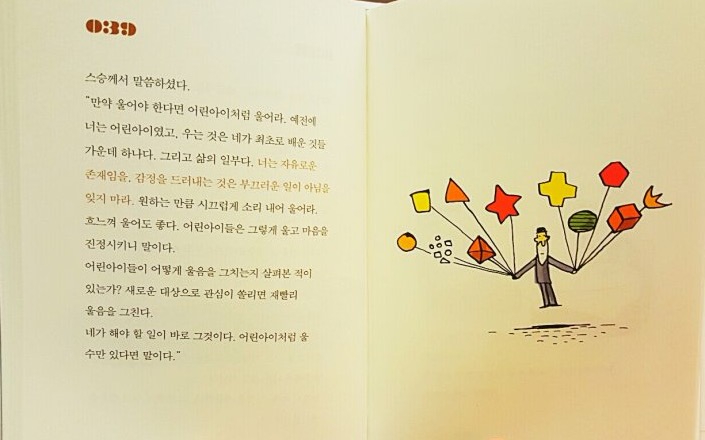 039
스승께서 말씀하셨다.
"만약 울어야 한다면 어린아이처럼 울어라. 예전에
너는 어린아이였고, 우는 것은 네가 최초로 배운 것들
가운데 하나다. 그리고 삶의 일부다. 너는 자유로운
존재임을, 감정을 드러내는 것은 부끄러운 일이 아님을
잊지 마라. 원하는 만큼 시끄럽게 소리 내어 울어라.
흐느껴 울어도 좋다. 어린아이들은 그렇게 울고 마음을
진정시키니 말이다.
어린아이들이 어떻게 울음을 그치는지 살펴본 적이
있는가? 새로운 대상으로 관심이 쏠리면 재빨리
울음을 그친다.
네가 해야 할 일이 바로 그것이다. 어린아이처럼 울
수만 있다면 말이다."